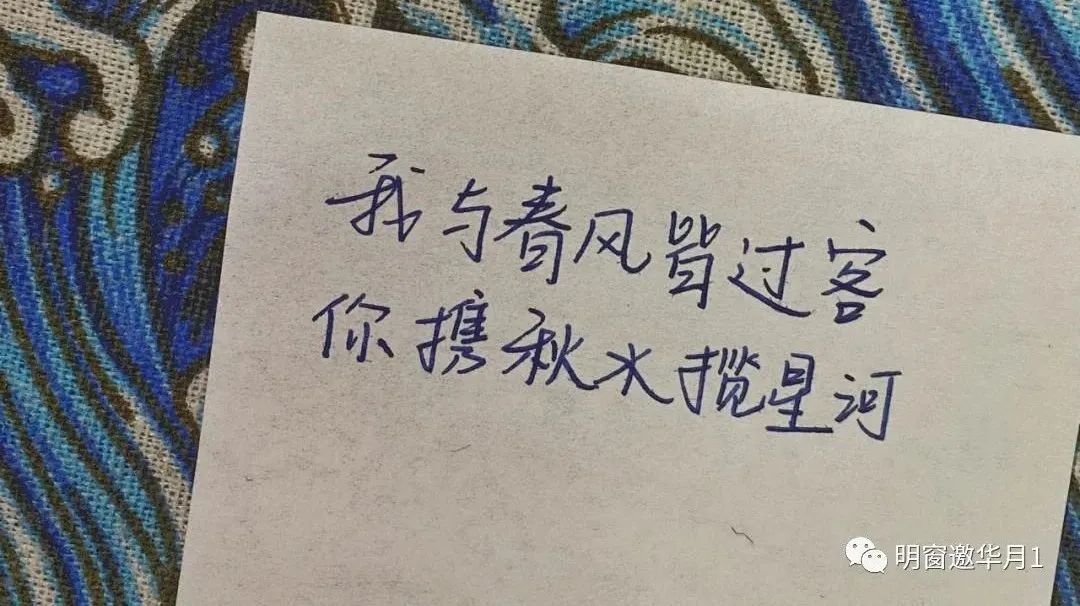 我与春风皆过客
你携秋水揽星河
明窗邀华月1